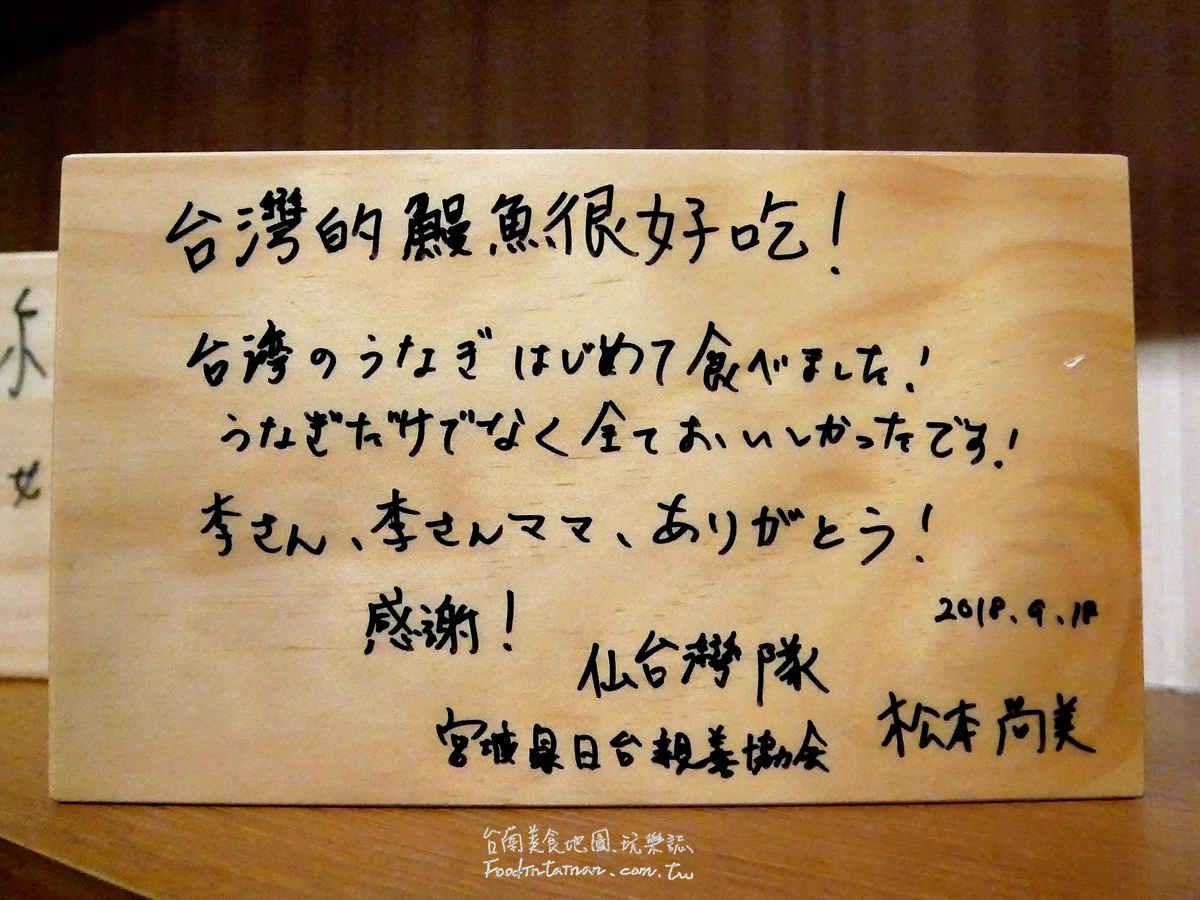 台灣的鰻魚很好吃！
台湾のうなぎはじめて食べました！
うなぎだけでなく全ておいしかったです！
李さん、李さんママ、ありがとう！
感謝！
2018.9.18
仙台灣隊
松本尚美
宮城県日台親善協会
台南美食地圖.玩樂誌
FoodInTainan.com.tw